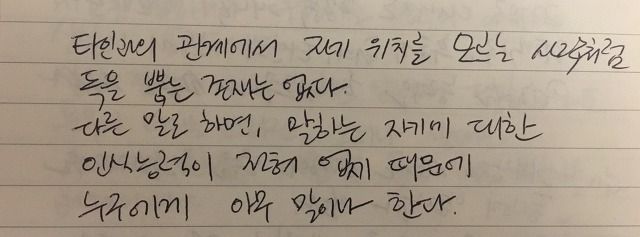 타인과의 관계에서 제 위치를 모르는 사람처럼
독을 뿜는 존재는 없다.
다른 말로 하면, 말하는 자기에 대한
인식능력이 전혀 없기 때문에
누구에게 아무 말이나 한다.